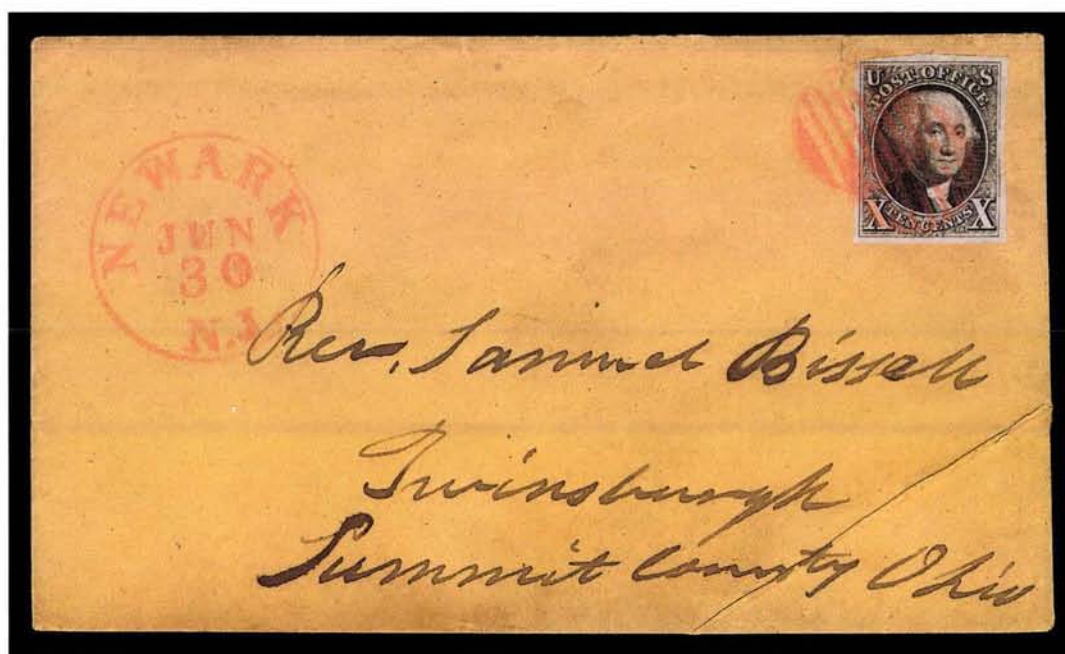 U S
POST OFFICE
X TEN CENTS X
NEWARK
JUN
30
N.J
Rev. Samuel Bissell
Twinsburgh
Summit County Ohio